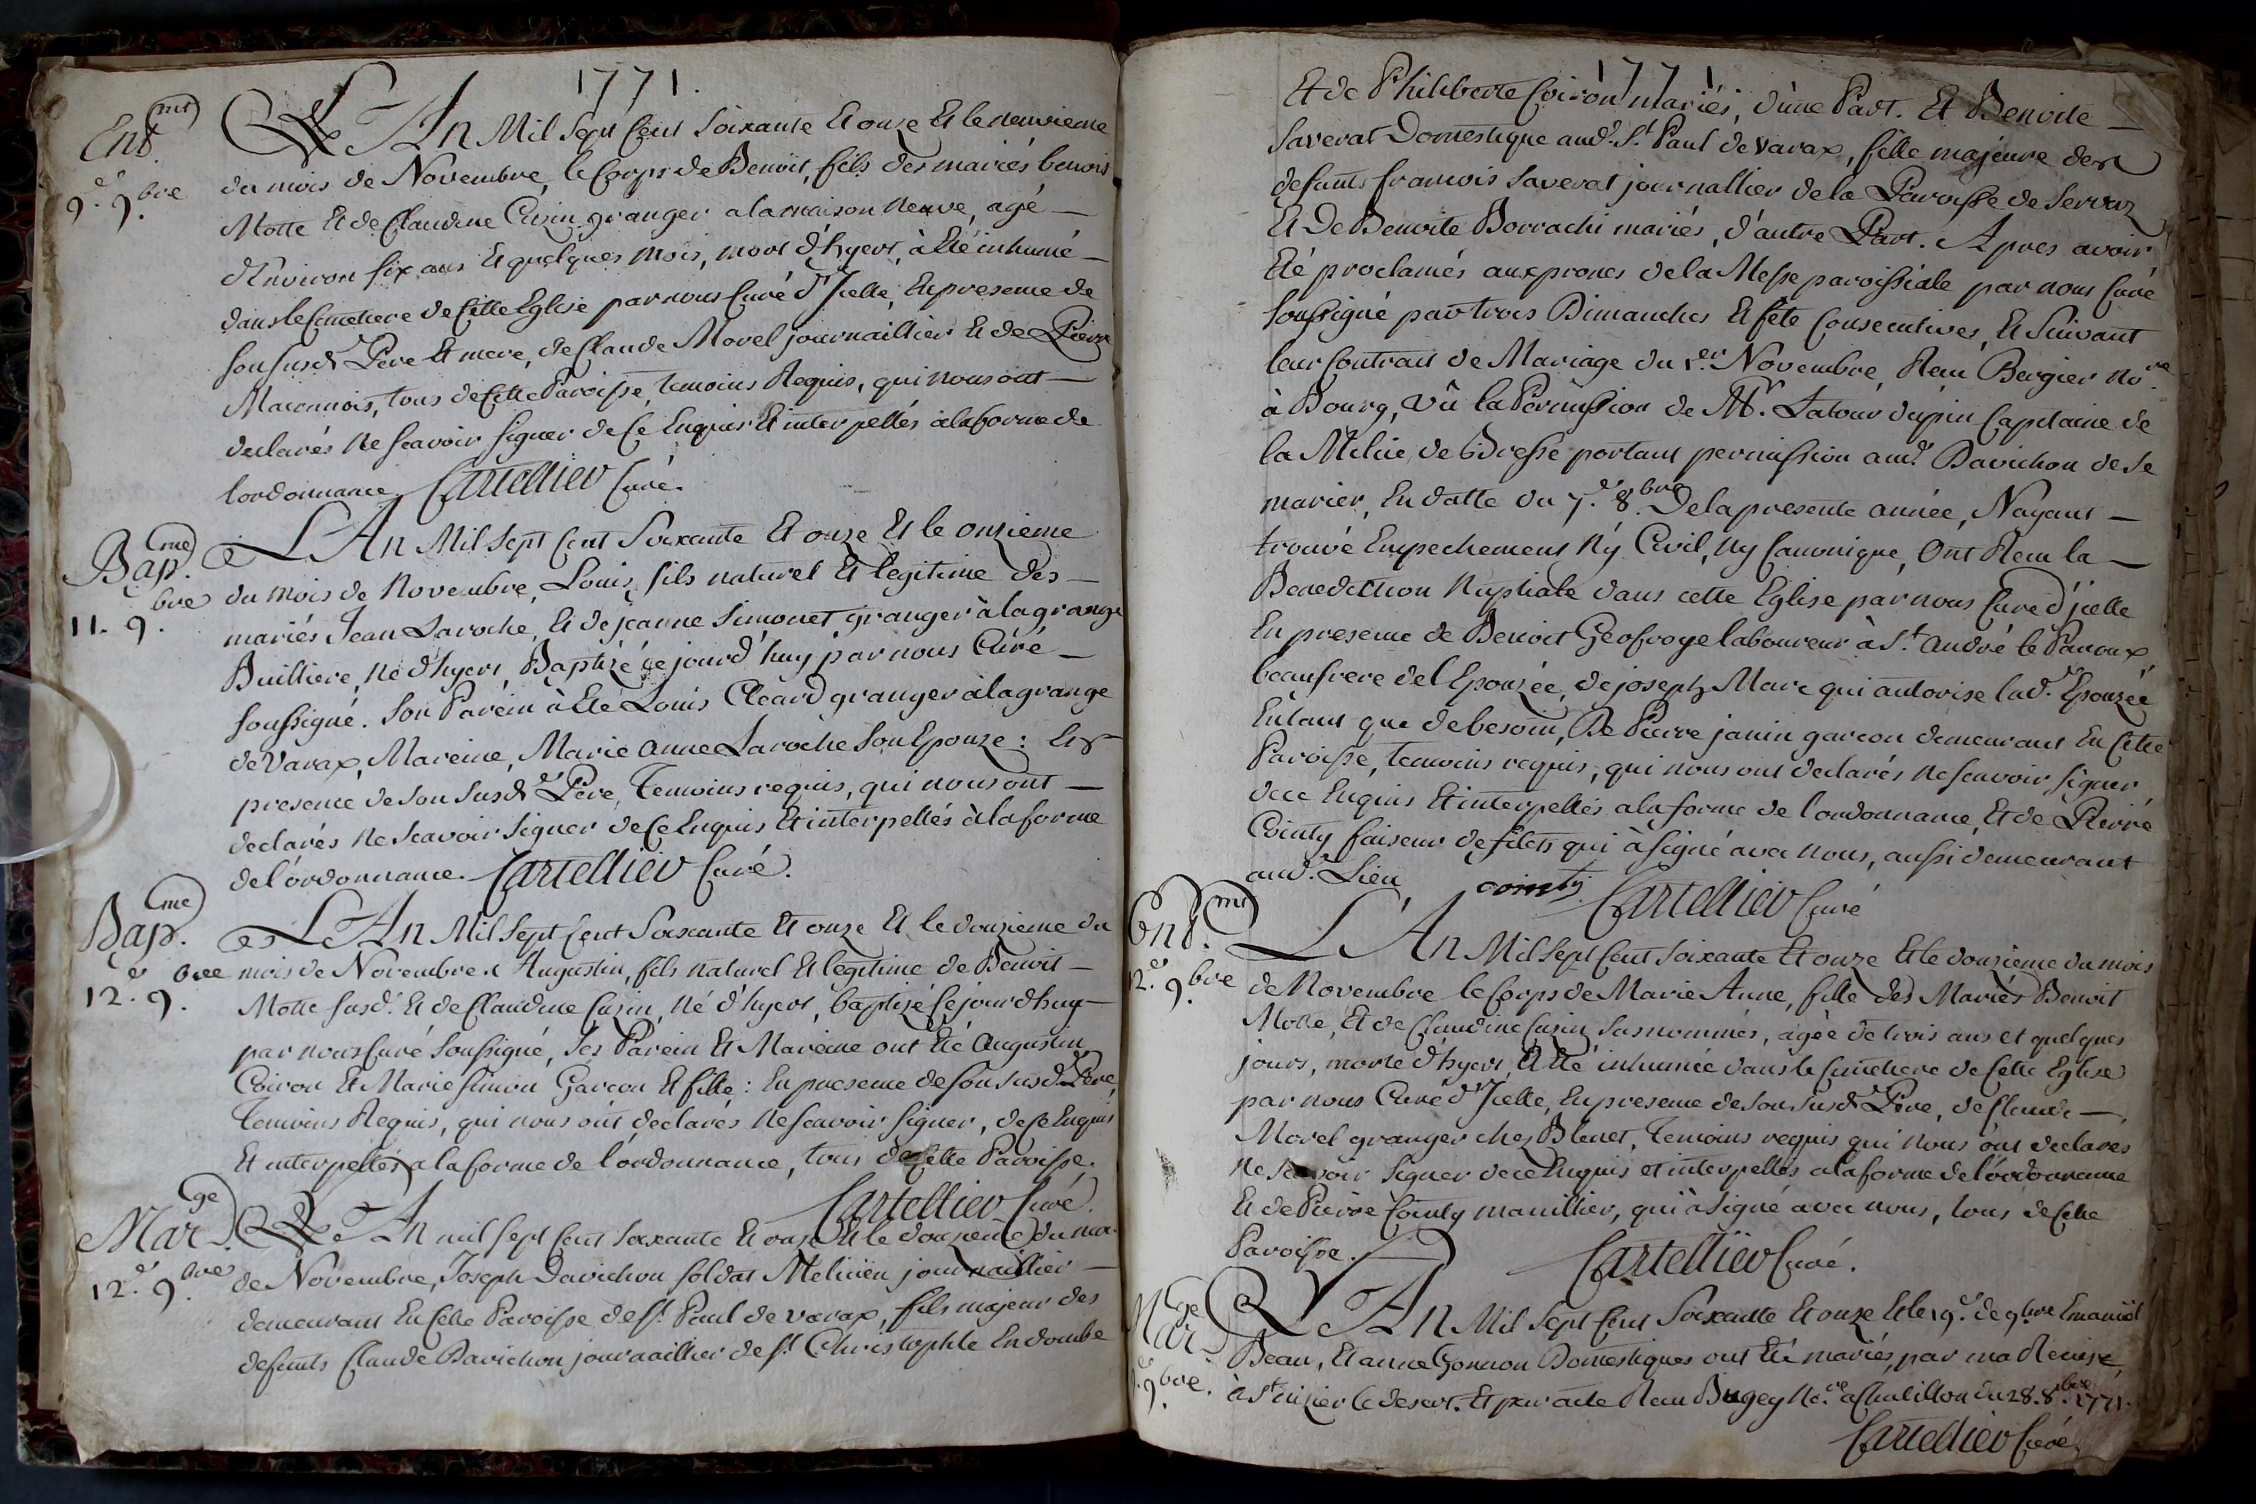 1771.
Ent.mt
9.e 9.bre
L'An Mil Sept Cent Soixante Et onze Et le neuvieme
du mois de Novembre, le Corps de Benoit, fils des mariés benoit
Motte Et de Claudine Cusin granger a la maison neuve, agé
d'Environ six ans Et quelques mois, mort d'hyert, à Eté inhumé
dans le Cimetiere de Cette Eglise par nous Curé d'Icelle, En presence de
son susd. Pere Et mere, de Claude Morel journaillier Et de Pierre
Maconnois, tous de Cette Paroisse, temoins Requis, qui nous ont
declarés ne scavoir signer de Ce Enquis Et interpellés a la forme de
lordonnance. Cartellier Curé.
Bap.me
11. 9.bre
L'An Mil Sept Cent Soixante Et onze Et le onzieme
du mois de Novembre, Louis, fils naturel Et legitime des
mariés Jean Laroche, Et de jeanne Simonet granger à la grange
Builliere, né d'hyert, Baptizé ce jourd'huy par nous Curé
soussigné. Son Parein à Eté Louis Cleard granger à la grange
de Varax, Mareine, Marie anne Laroche son Epouze: En
presence de son susd. Pere, Temoins requis, qui nous ont
declarés ne scavoir signer de Ce Enquis Et interpellés à la forme
de l'ordonnance. Cartellier Curé.
Bap.me
12.e 9.bre
L'An Mil Sept Cent Soixante Et onze Et le douzieme du
mois de Novembre Augustin, fils naturel Et legitime de Benoit
Motte susd. Et de Claudine Cusin, né d'hyert, baptizé Ce jourdhuy
par nous Curé soussigné, Ses Parein Et Mareine ont Eté Augustin
Coiron Et Marie Simon Garcon Et fille: En presence de son susd. Pere,
Temoins Requis, qui nous ont declarés ne scavoir signer, de Ce Enquis
Et interpellés a la forme de l'ordonnance, tous de Cette Paroisse.
Cartellier Curé.
Mar.ge
12.e 9.bre
L'An mil sept Cent soixante Et onze Et le douzieme du mois
de Novembre, Joseph Davichon soldat Milicien journaillier
demeurant En Cette Paroisse de St. Paul de varax, fils majeur des
defunts Claude Davichon journaillier de St. Christophle En dombe
1771
Et de Philiberte Coiron mariés, d'une Part. Et Benoite
Saverat Domestique aud. St. Paul de varax, fille majeure des
defunts francois Saverat journallier de la Paroisse de Servaz
Et De Benoite Borrachi mariés, d'autre Part. Apres avoir
Eté proclamés aux prones de la Messe paroissiale par nous Curé
soussigné par trois Dimanches Et fête Consecutives, Et Suivant
leur Contrait de Mariage du 1.er Novembre, Recu Bergier No.re
à Bourg, Vû la Permission de Mr. Latour dupin Capitaine de
la Milice de Bresse portant permission aud. Davichon de se
marier, En datte du 7.e 8.bre De la presente année, N'ayant
trouvé Empechement Ny Civil, Ny Canonique, Ont Recu la
Benediction Nuptiale dans cette Eglise par nous Curé d'icelle
En presence de Benoit Geofroye laboureur à St. andré le Panoux
beaufrere de l'Epouzée, de joseph Mare qui autorise lad. Epouzée
En tant que de besoin, De Pierre janin garcon demeurant En Cette
Paroisse, temoins requis, qui nous ont declarés ne scavoir signer
de ce Enquis Et interpellés a la forme de l'ordonnance, Et de Pierre
Cointy faiseur de filets qui à signé avec nous, aussi demeurant
aud. Lieu, cointy Cartellier Curé
Ent.mt
12.e 9.bre
L'An Mil Sept Cent soixante Et onze Et le douzieme du mois
de Novembre le Corps de Marie Anne, fille des Mariés Benoit
Motte, Et de Claudine Cusin susnommés, agée de trois ans et quelques
jours, morte d'hyert, à Eté inhumée dans le Cimetiere de Cette Eglise
par nous Curé d'Icelle, En presence de son susd. Pere, de Claude
Morel granger chez Blenet, Temoins requis qui nous ont declarés
ne scavoir signer de ce Enquis et interpellés a la forme de l'ordonnance
Et de Pierre Cointy manillier, qui à signé avec nous, tous de Cette
Paroisse. Cartellier Curé.
Mar.ge
9.bre.
L'An Mil Sept Cent Soixante Et onze Et le 19.e de 9.bre Emanüel
Beau, Et anne Gonnon Domestiques ont Eté mariés par ma Remise
à St. nizier le desert. Et par acte Recu Bugey No.re a Chatillon du 28. 8.bre 1771.
Cartellier Curé.